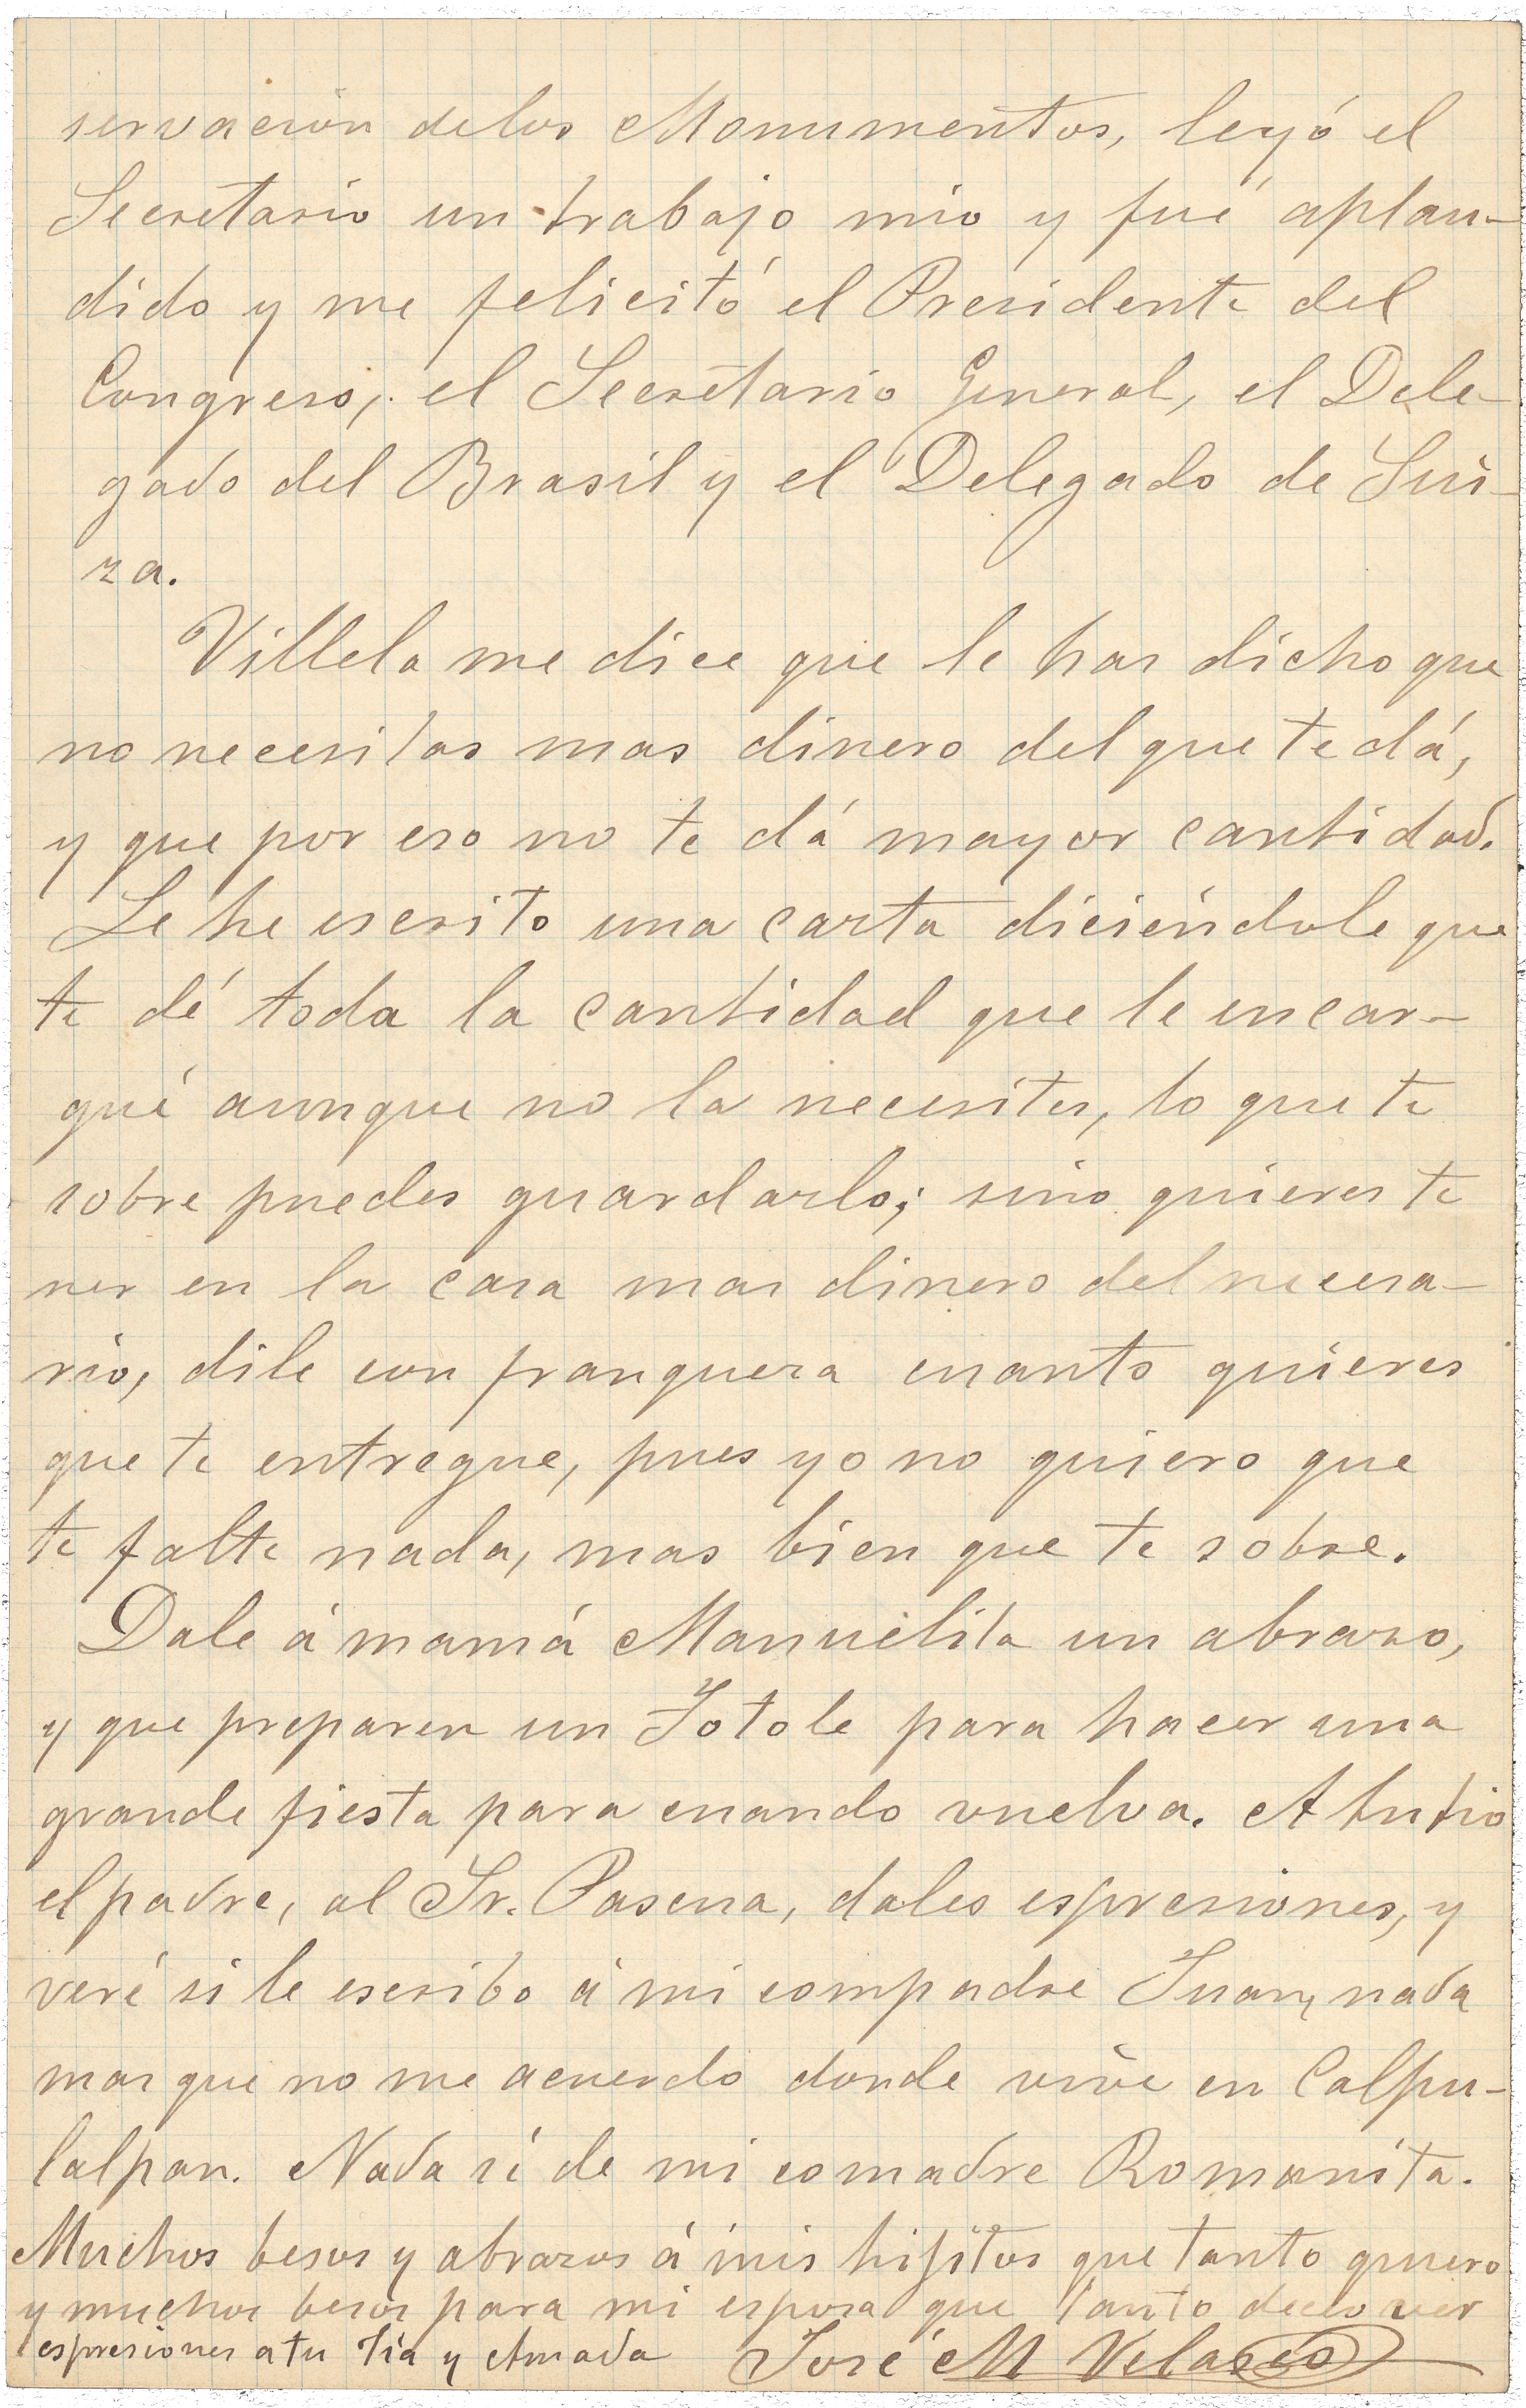 servacion delos Monumentos, leyó el
Secretario un trabajo mio y fué aplau-
dido y me felicitó el Presidente del
Congreso, el Secretario General, el Dele-
gado del Brasil y el Delegado de Sui-
za.
Villela me dice que le has dicho que
no necesitas mas dinero del que te dá,
y que por eso no te dá mayor cantidad.
Le he escrito una carta diciéndole que
te dé toda la cantidad que le encar-
gué aunque no la necesites, lo que te
sobre puedes guardarlo; sino quieres te
ner en la casa mas dinero del necesa-
rio, dile con franqueza cuanto quieres
que te entregue, pues yo no quiero que
te falte nada, mas bien que te sobre.
Dale á mamá Manuelita un abrazo,
y que preparen un Totole para hacer una
grande fiesta para cuando vuelva. A tu tio
el padre, al Sr. Pasena, dales espresiones, y
veré si le escribo á mi compadre Juan, nada
mas que no me acuerdo donde vive en Calpu-
lalpan. Nada sé de mi comadre Romanita.
Muchos besos y abrazos á mis hijitos que tanto quiero
y muchos besos para mi esposa que tanto deceo ver
espresiones a tu tía y Amada José M Velasco